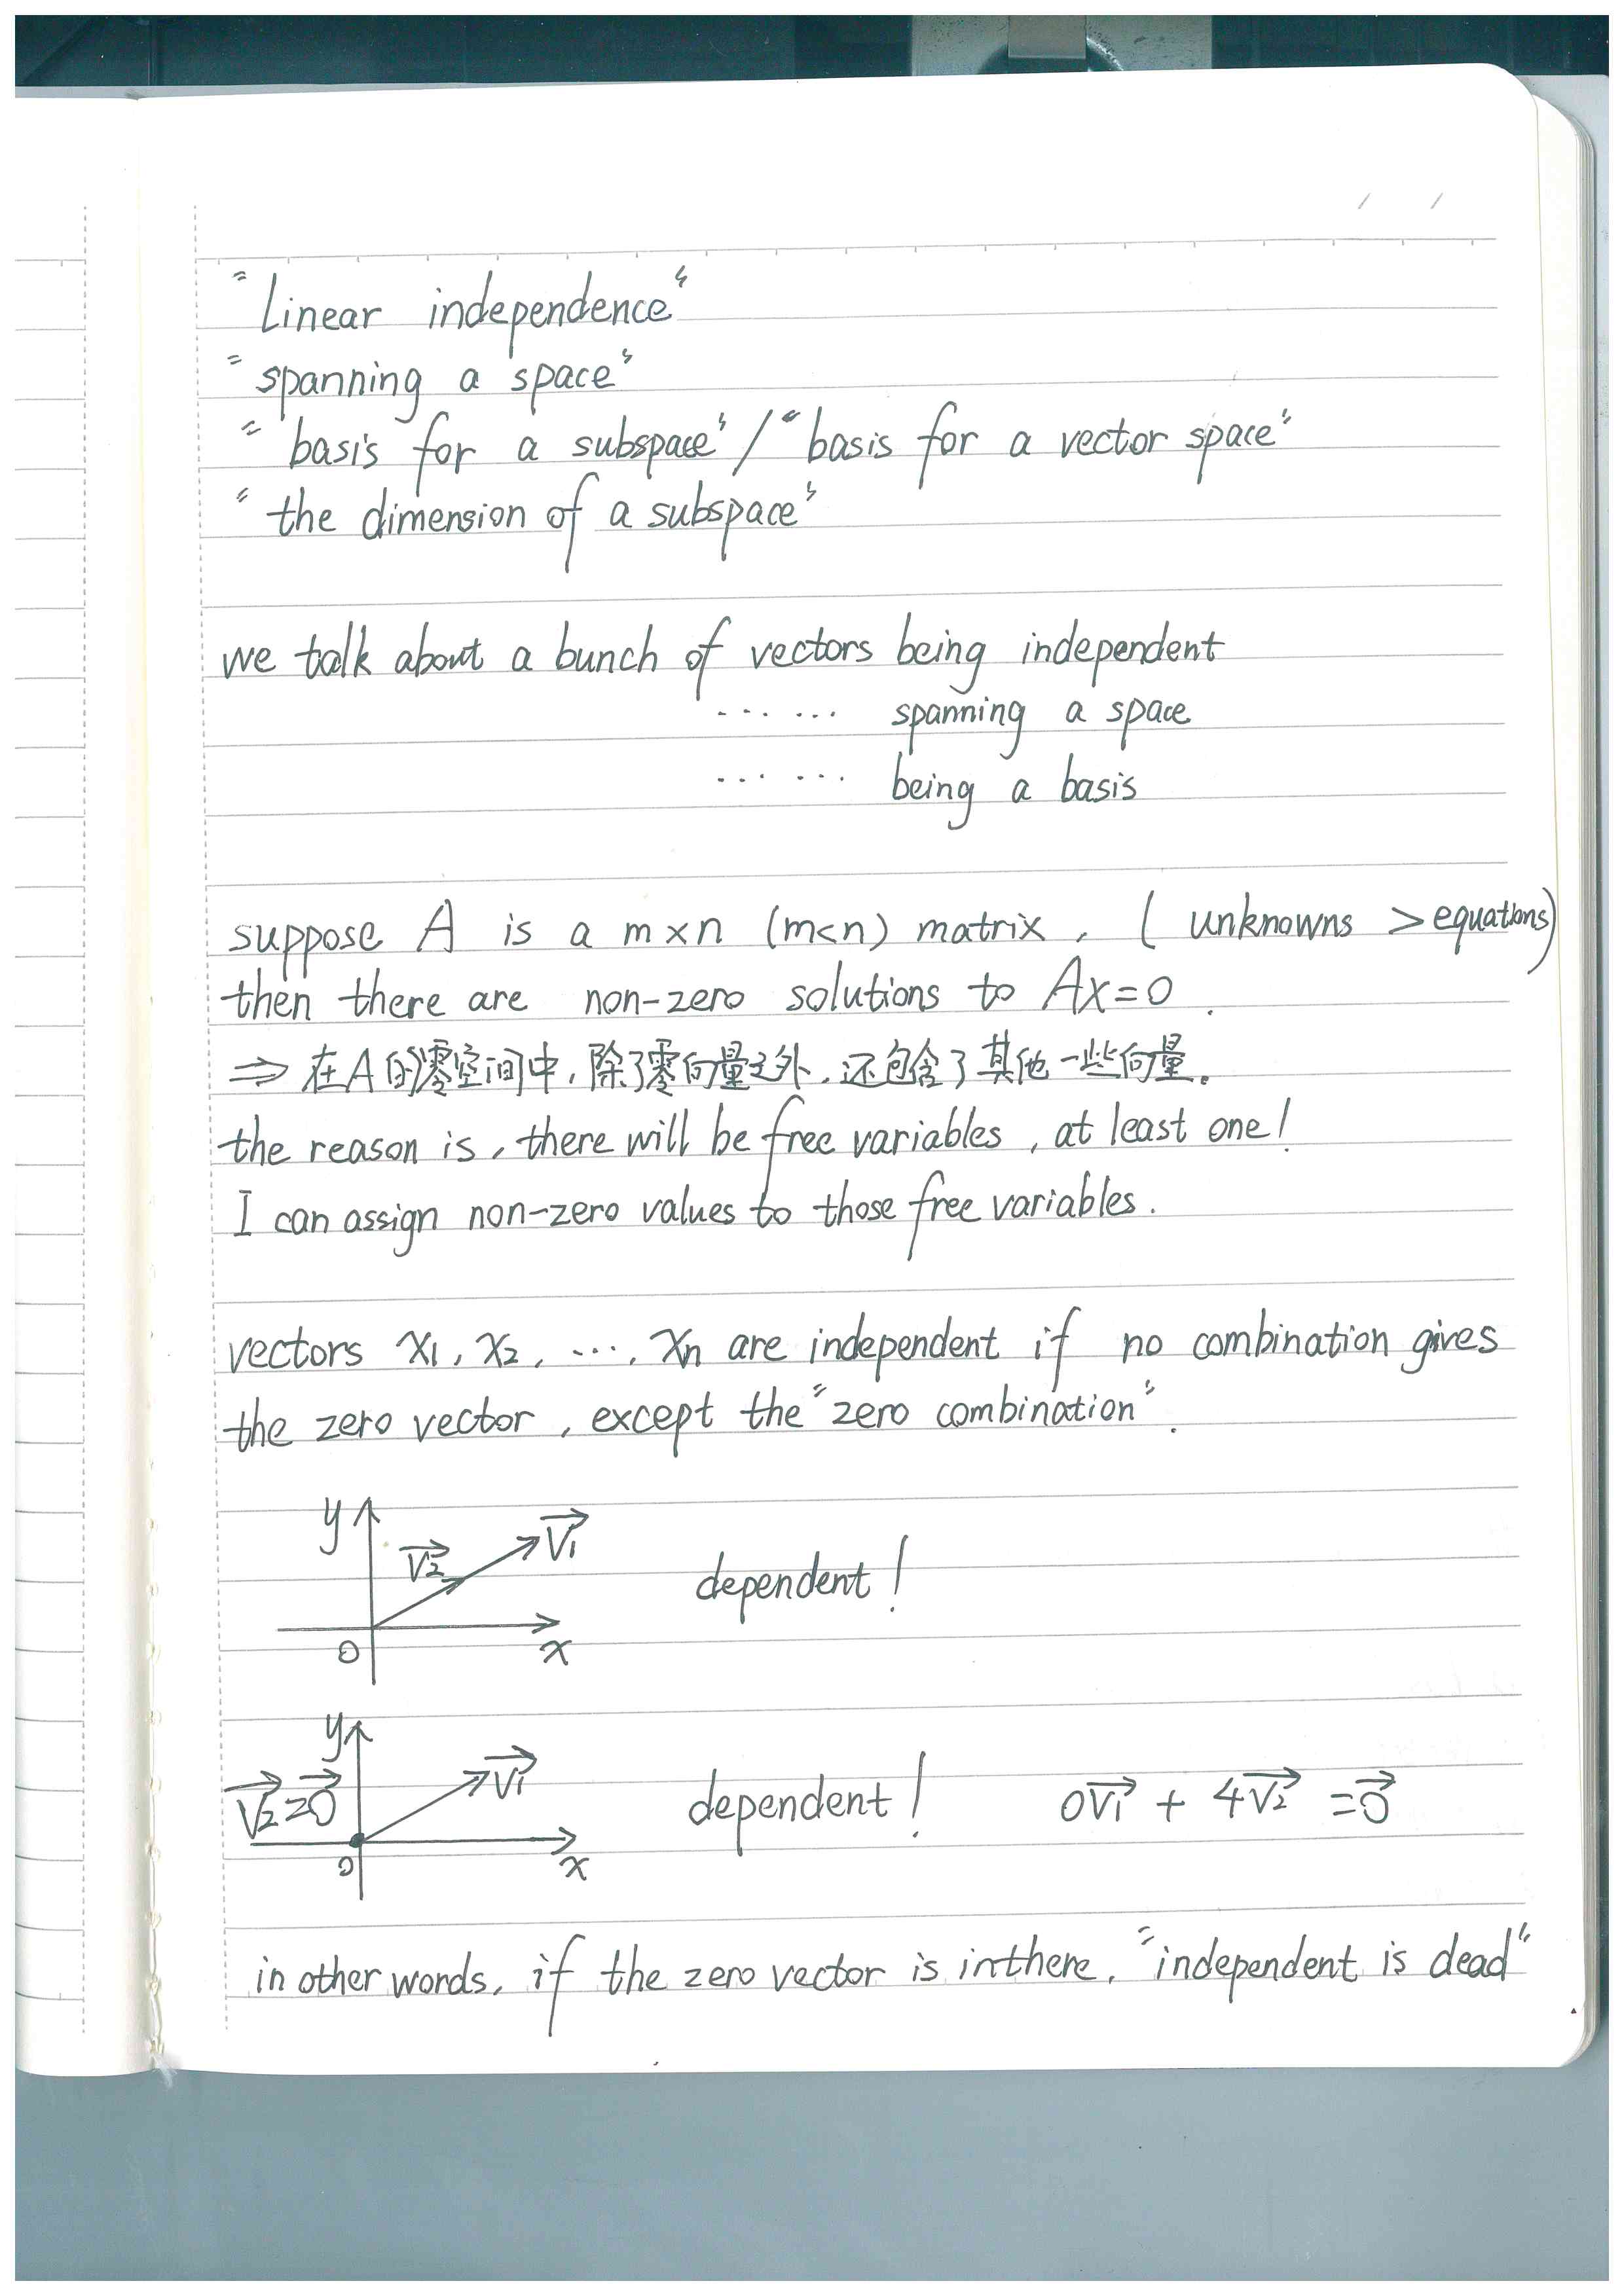 "Linear independence"
"spanning a space"
"basis for a subspace" / "basis for a vector space"
"the dimension of a subspace"
we talk about a bunch of vectors being independent
... ... spanning a space
... ... being a basis
suppose A is a m×n (m<n) matrix, (unknowns > equations)
then there are non-zero solutions to Ax=0.
⇒ 在A的零空间中,除了零向量之外,还包含了其他一些向量。
the reason is, there will be free variables, at least one!
I can assign non-zero values to those free variables.
vectors x1, x2, ..., xn are independent if no combination gives
the zero vector, except the "zero combination".
y
v2→ v1→
dependent!
0 x
y
v2→=0→ v1→
dependent! 0v1→ + 4v2→ =0→
0 x
in other words, if the zero vector is in there, "independent is dead"